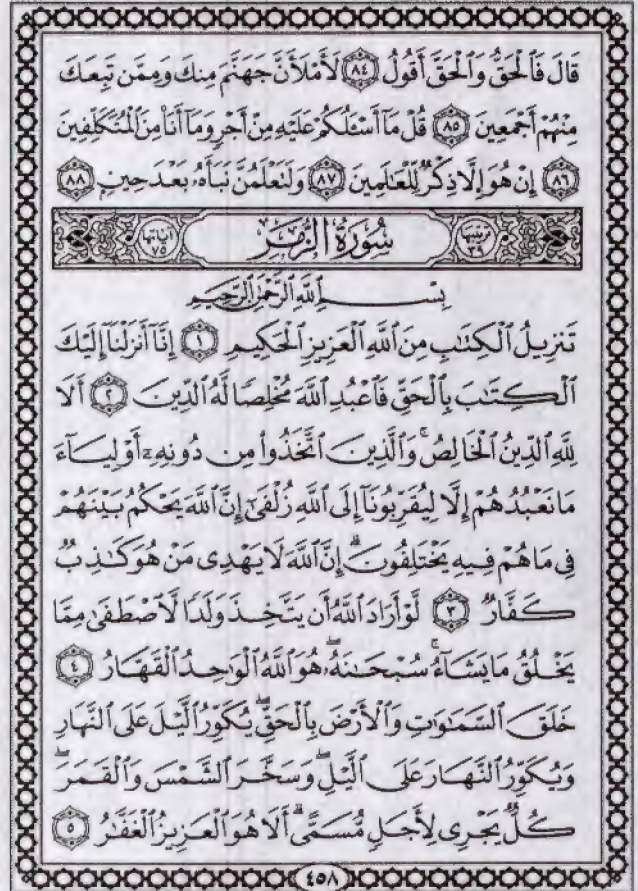 قَالَ فَٱلْحَقُّ وَٱلْحَقَّ أَقُولُ ٨٤ لَأَمْلَأَنَّ جَهَنَّمَ مِنكَ وَمِمَّن تَبِعَكَ
مِنْهُمْ أَجْمَعِينَ ٨٥ قُلْ مَآ أَسْـَٔلُكُمْ عَلَيْهِ مِنْ أَجْرٍ وَمَآ أَنَا۠ مِنَ ٱلْمُتَكَلِّفِينَ
٨٦ إِنْ هُوَ إِلَّا ذِكْرٌ لِّلْعَٰلَمِينَ ٨٧ وَلَتَعْلَمُنَّ نَبَأَهُۥ بَعْدَ حِينٍۭ ٨٨
ترتيبها ٣٩ سُورَةُ الزُّمَر آياتها ٧٥
بِسْمِ ٱللَّهِ ٱلرَّحْمَٰنِ ٱلرَّحِيمِ
تَنزِيلُ ٱلْكِتَٰبِ مِنَ ٱللَّهِ ٱلْعَزِيزِ ٱلْحَكِيمِ ١ إِنَّآ أَنزَلْنَآ إِلَيْكَ
ٱلْكِتَٰبَ بِٱلْحَقِّ فَٱعْبُدِ ٱللَّهَ مُخْلِصًا لَّهُ ٱلدِّينَ ٢ أَلَا
لِلَّهِ ٱلدِّينُ ٱلْخَالِصُ ۚ وَٱلَّذِينَ ٱتَّخَذُوا۟ مِن دُونِهِۦٓ أَوْلِيَآءَ
مَا نَعْبُدُهُمْ إِلَّا لِيُقَرِّبُونَآ إِلَى ٱللَّهِ زُلْفَىٰٓ إِنَّ ٱللَّهَ يَحْكُمُ بَيْنَهُمْ
فِى مَا هُمْ فِيهِ يَخْتَلِفُونَ ۗ إِنَّ ٱللَّهَ لَا يَهْدِى مَنْ هُوَ كَٰذِبٌ
كَفَّارٌ ٣ لَّوْ أَرَادَ ٱللَّهُ أَن يَتَّخِذَ وَلَدًا لَّٱصْطَفَىٰ مِمَّا
يَخْلُقُ مَا يَشَآءُ ۚ سُبْحَٰنَهُۥ ۖ هُوَ ٱللَّهُ ٱلْوَٰحِدُ ٱلْقَهَّارُ ٤
خَلَقَ ٱلسَّمَٰوَٰتِ وَٱلْأَرْضَ بِٱلْحَقِّ ۖ يُكَوِّرُ ٱلَّيْلَ عَلَى ٱلنَّهَارِ
وَيُكَوِّرُ ٱلنَّهَارَ عَلَى ٱلَّيْلِ ۖ وَسَخَّرَ ٱلشَّمْسَ وَٱلْقَمَرَ ۖ
كُلٌّ يَجْرِى لِأَجَلٍ مُّسَمًّى ۗ أَلَا هُوَ ٱلْعَزِيزُ ٱلْغَفَّٰرُ ٥
٤٥٨